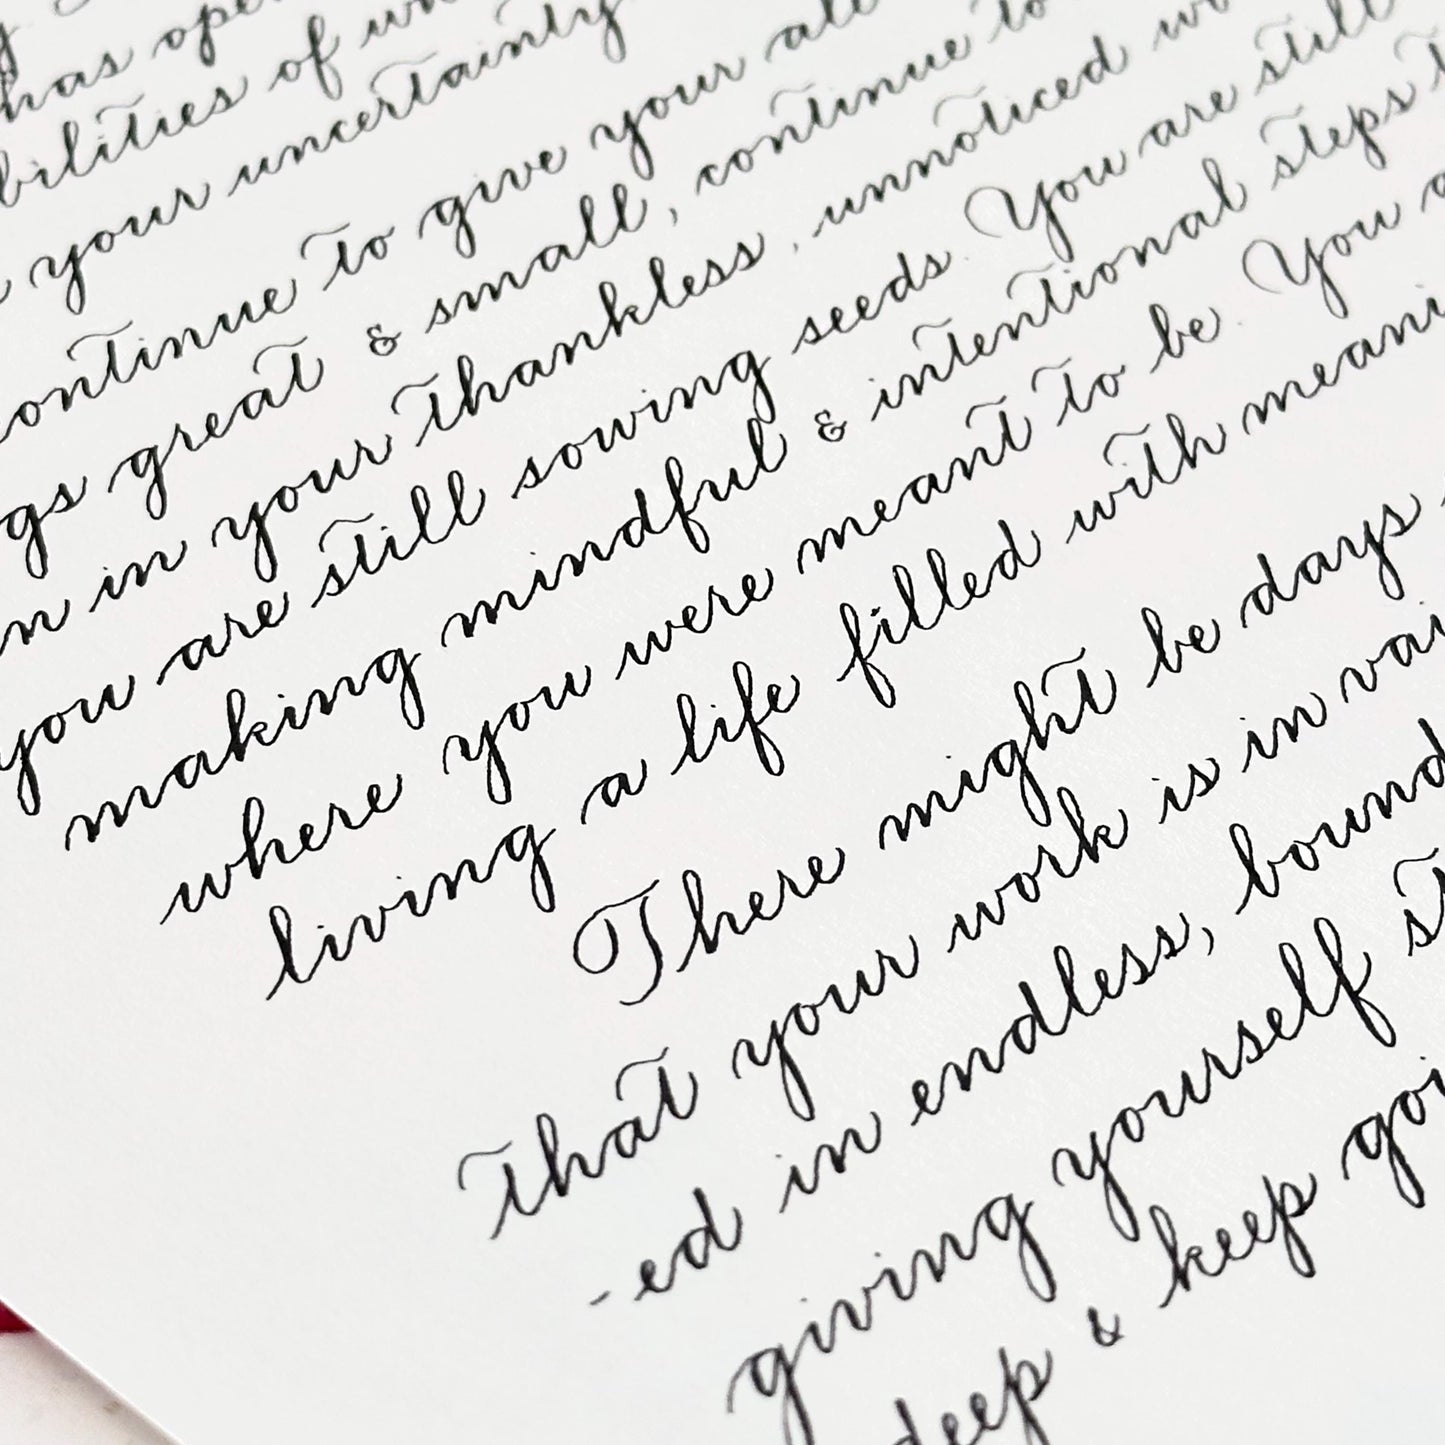 has
of
your uncertainty
continue to give your
great & small, continue to
in your thankless, unnoticed
you are still sowing seeds. You are still
making mindful & intentional steps
where you were meant to be. You
living a life filled with
There might be days
that your work is in
-ed in endless, bound
giving yourself
deep & keep